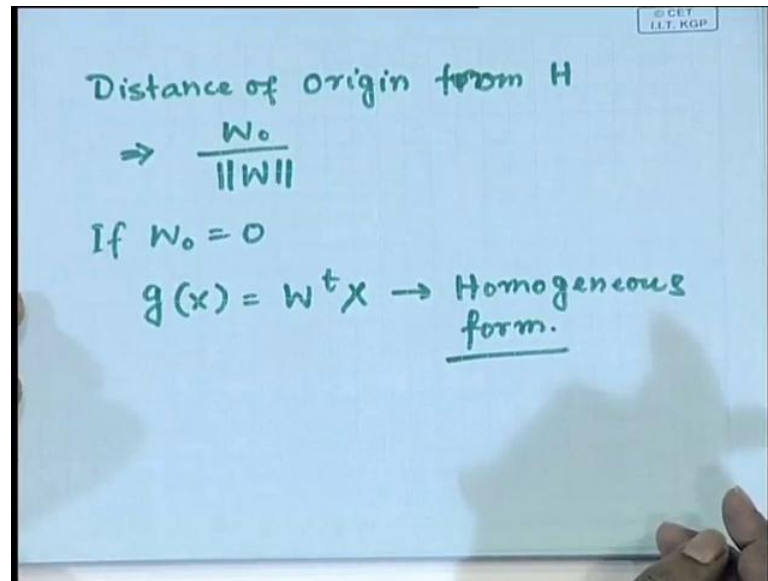 © CET
I.I.T. KGP
Distance of origin from H
⇒ W₀ / ||W||
If W₀ = 0
g(x) = Wᵗ X → Homogeneous
form.